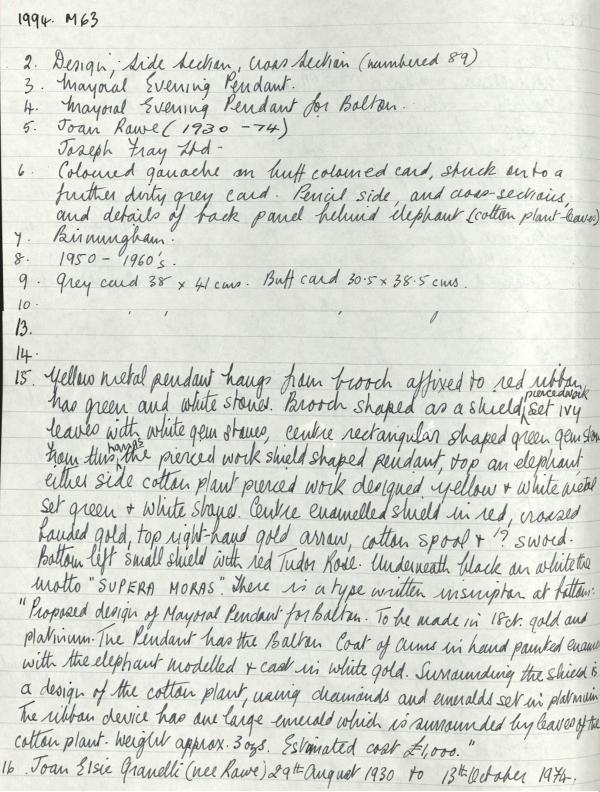 1994. M63
2. Design, Side Section, cross Section (numbered 89)
3. Mayoral Evening Pendant.
4. Mayoral Evening Pendant for Bolton.
5. Joan Rawe (1930 - 74)
Joseph Fray Ltd -
6. Coloured gouache on buff coloured card, stuck onto a
further dirty grey card. Pencil side, and cross-sections,
and details of back panel behind elephant (cotton plant-leaves)
7. Birmingham.
8. 1950 - 1960's.
9. Grey card 38 x 41 cms. Buff card 30.5 x 38.5 cms.
10.
13.
14.
15. Yellow metal pendant hangs from brooch affixed to red ribbon,
has green and white stones. Brooch shaped as a shield, pierced work set ivy
leaves with white gem stones, centre rectangular shaped green gem stone
from this hangs the pierced work shield shaped pendant, top an elephant
either side cotton plant pierced work designed yellow + white metal
set green + white stones. Centre enamelled shield in red, crossed
banded gold, top right-hand gold arrow, cotton spool + ? sword.
Bottom left small shield with red Tudor Rose. Underneath black on white the
motto "SUPERA MORAS". There is a type written inscription at bottom:
"Proposed design of Mayoral Pendant for Bolton. To be made in 18ct. gold and
platinum. The Pendant has the Bolton Coat of Arms in hand painted enamel
with the elephant modelled + cast in white gold. Surrounding the shield is
a design of the cotton plant, using diamonds and emeralds set in platinum
The ribbon device has one large emerald which is surrounded by leaves of the
cotton plant. Weight approx. 3 ozs. Estimated cost £1,000."
16. Joan Elsie Granelli (nee Rawe) 29th August 1930 to 13th October 1974.